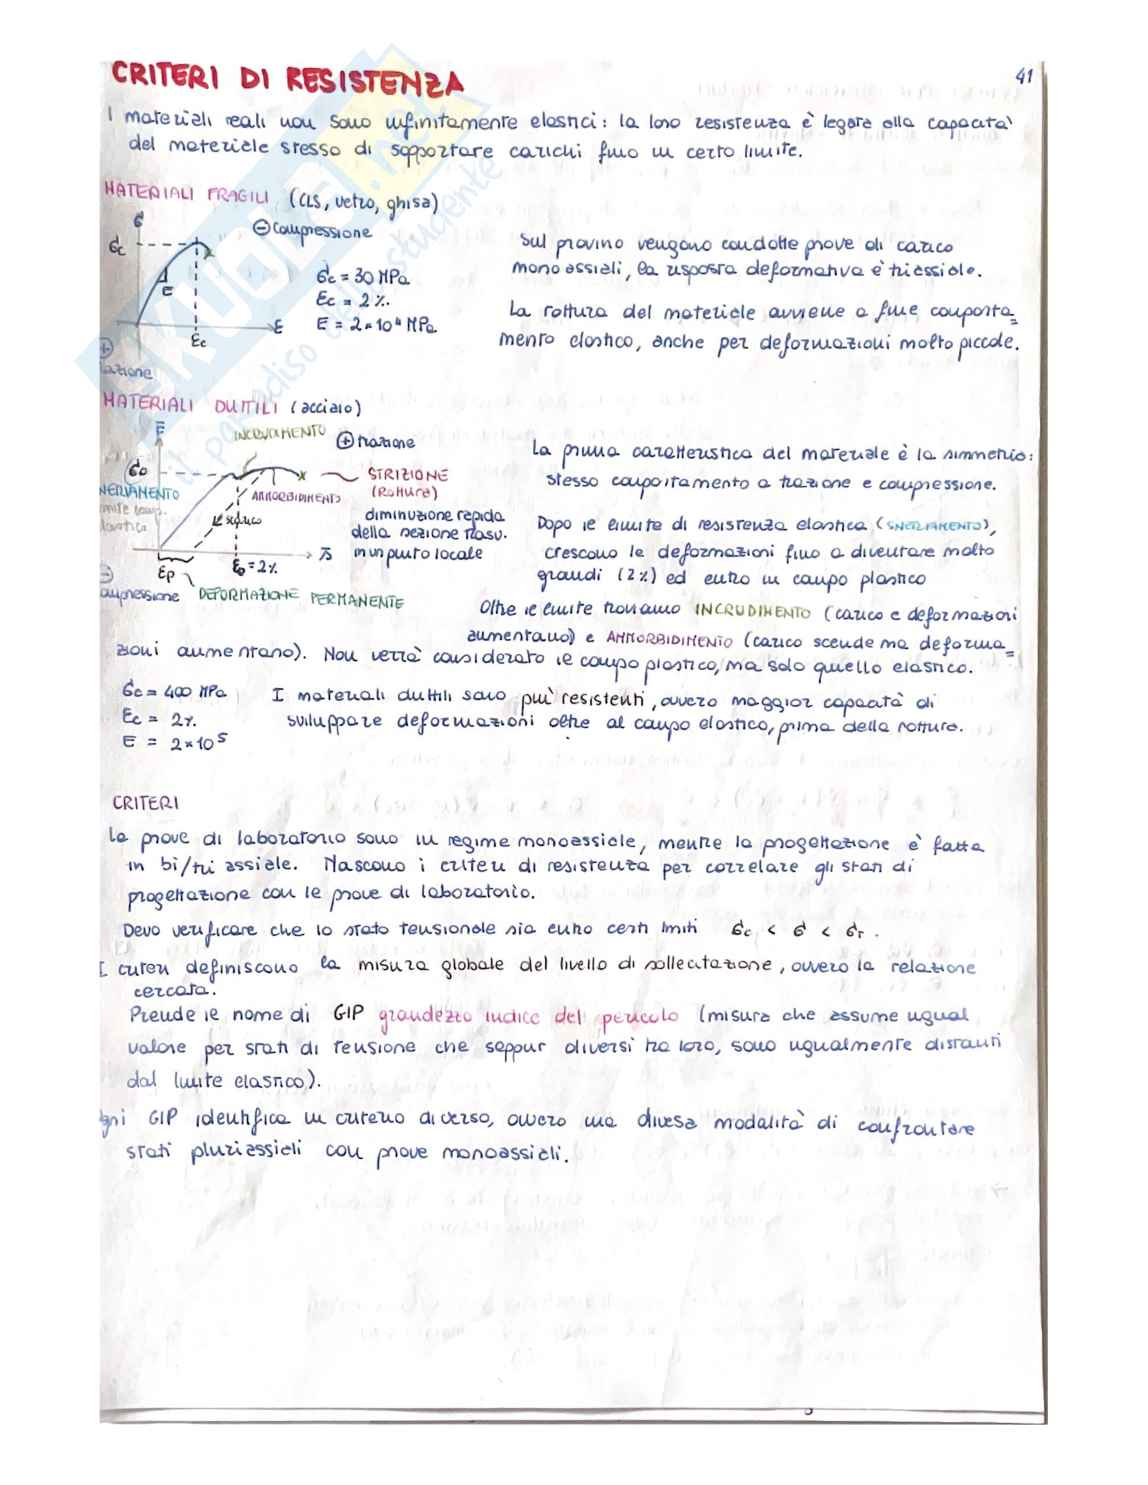 CRITERI DI RESISTENZA
41
I materiali reali non sono infinitamente elastici: la loro resistenza è legata alla capacità
del materiale stesso di sopportare carichi fino un certo limite.
MATERIALI FRAGILI (CLS, vetro, ghisa)
σ
⊖ compressione
σc
E
εc
ε
σc = 30 MPa
εc = 2 %.
E = 2×10⁴ MPa
Sul provino vengono condotte prove di carico
mono assiali, la risposta deformativa è triassiale.
La rottura del materiale avviene a fine comporta=
mento elastico, anche per deformazioni molto piccole.
⊕
azione
MATERIALI DUTTILI (acciaio)
F
INCRUDIMENTO
⊕ trazione
σo
NERVAMENTO
AMMORBIDIMENTO
STRIZIONE
(Rottura)
scarico
diminuzione rapida
della sezione trasv.
in un punto locale
εp
εo = 2%
⊖
ompressione
DEFORMAZIONE PERMANENTE
La prima caratteristica del materiale è la simmetria:
stesso comportamento a trazione e compressione.
Dopo il limite di resistenza elastica (SNERVAMENTO),
crescono le deformazioni fino a diventare molto
grandi (2%) ed entro in campo plastico
Oltre il limite troviamo INCRUDIMENTO (carico e deformazioni
aumentano) e AMMORBIDIMENTO (carico scende ma deforma=
zioni aumentano). Non verrà considerato il campo plastico, ma solo quello elastico.
σc = 400 MPa
εc = 2%
E = 2×10⁵
I materiali duttili sono più resistenti, ovvero maggior capacità di
sviluppare deformazioni oltre al campo elastico, prima della rottura.
CRITERI
Le prove di laboratorio sono in regime monoassiale, mentre la progettazione è fatta
in bi/tri assiale. Nascono i criteri di resistenza per correlare gli stati di
progettazione con le prove di laboratorio.
Devo verificare che lo stato tensionale sia entro certi limiti σc < σ < σT.
I criteri definiscono la misura globale del livello di sollecitazione, ovvero la relazione
cercata.
Prende il nome di GIP grandezza indice del pericolo (misura che assume ugual
valore per stati di tensione che seppur diversi tra loro, sono ugualmente distanti
dal limite elastico).
gni GIP identifica un criterio diverso, ovvero una diversa modalità di confrontare
stati pluriassiali con prove monoassiali.